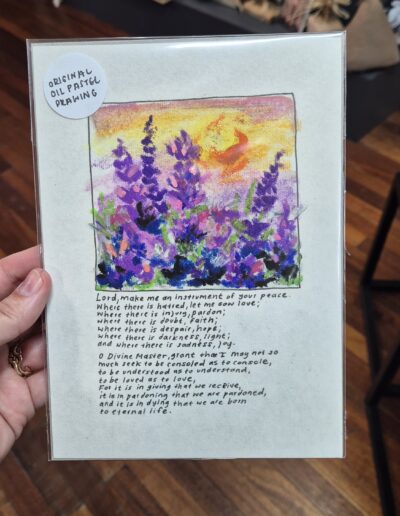 ORIGINAL
OIL PASTEL
DRAWING
Lord, make me an instrument of your peace.
Where there is hatred, let me sow love;
where there is injury, pardon;
where there is doubt, faith;
where there is despair, hope;
where there is darkness, light;
and where there is sadness, joy.
O Divine Master, grant that I may not so
much seek to be consoled as to console,
to be understood as to understand,
to be loved as to love,
For it is in giving that we receive,
it is in pardoning that we are pardoned,
and it is in dying that we are born
to eternal life.